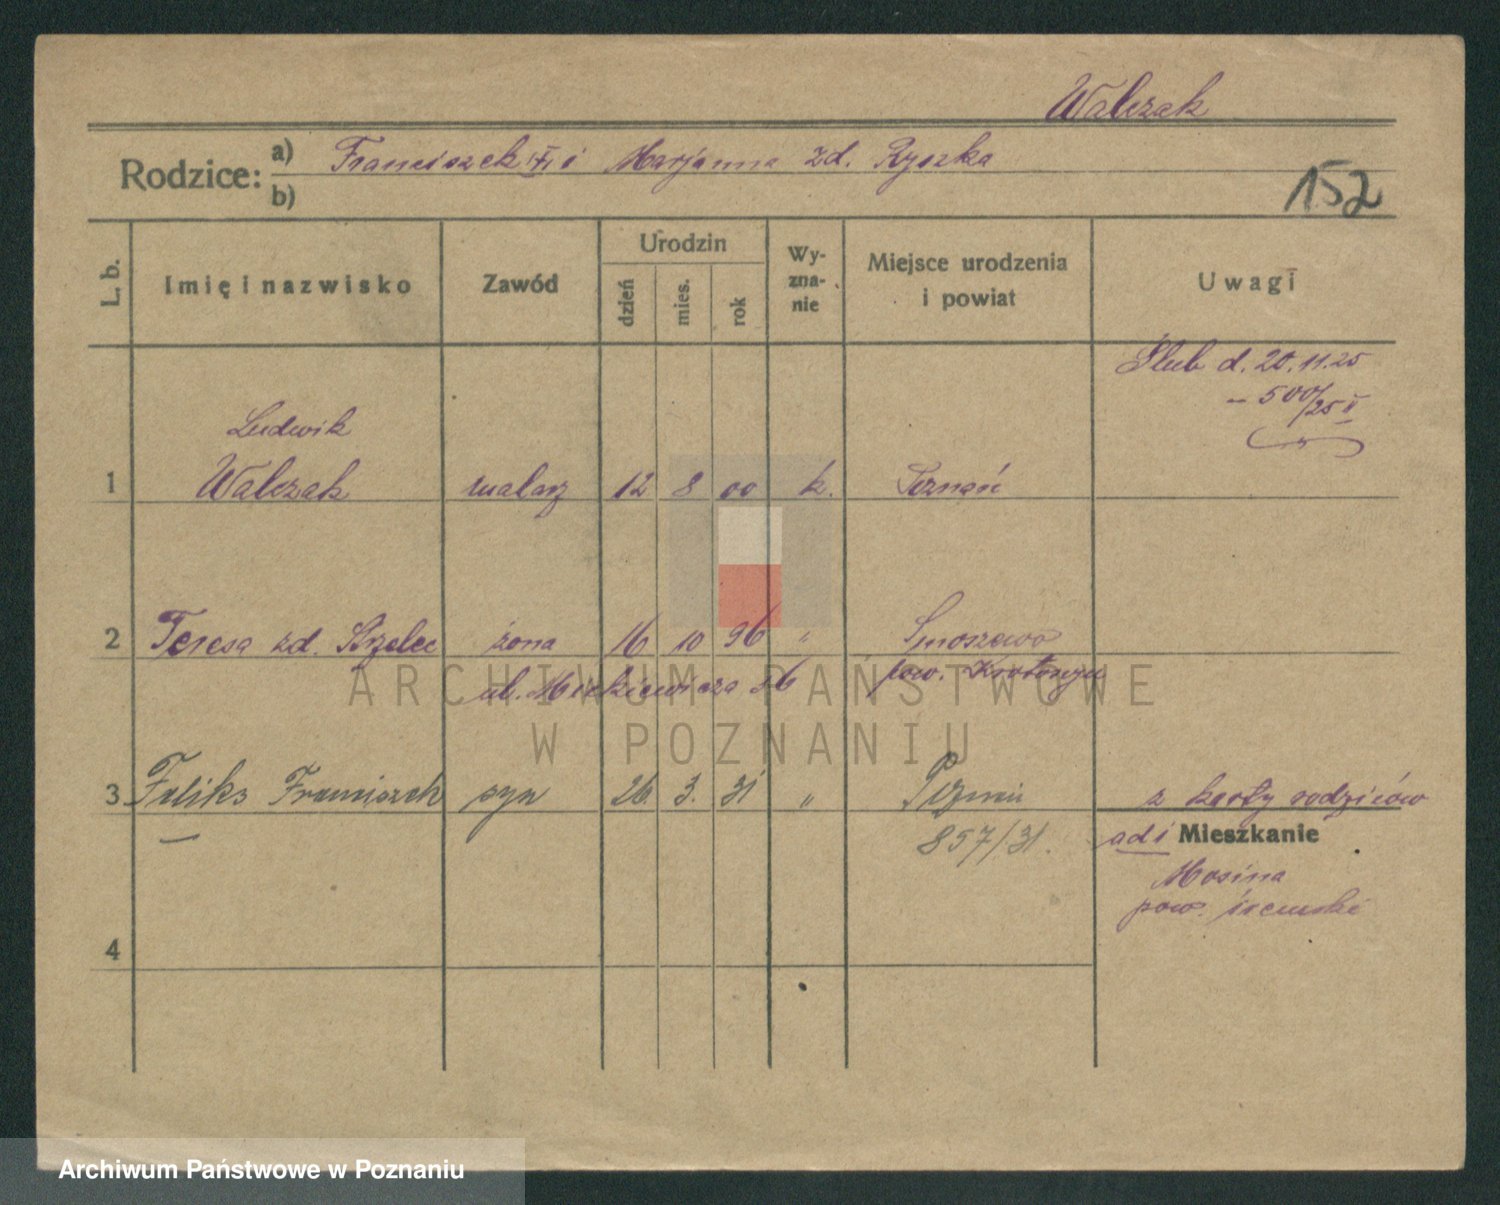 Walczak
Rodzice: a) Franciszek i Marjanna zd. Ryszka
b)
152
L. b. Imię i nazwisko Zawód Urodzin dzień mies. rok Wyznanie Miejsce urodzenia i powiat Uwagi
Ślub d. 20.11.25
– 500/25 II
Ludwik
1 Walczak malarz 12 8 00 k. Poznań
2 Teresa zd. Strzelec żona 16 10 96 " Smoszewo
ul. Mickiewicza pow. Krotoszyn
3 Feliks Franciszek syn 26. 3. 31 " Poznań z karty rodziców
857/31. adi Mieszkanie
Mosina
pow. śremski
4
ARCHIWUM PAŃSTWOWE
W POZNANIU
Archiwum Państwowe w Poznaniu